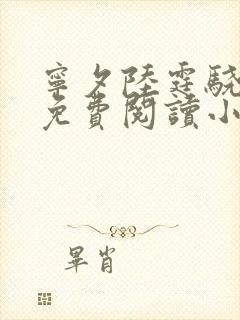 寧夕陸霆驍
免費閱讀小
畢肖